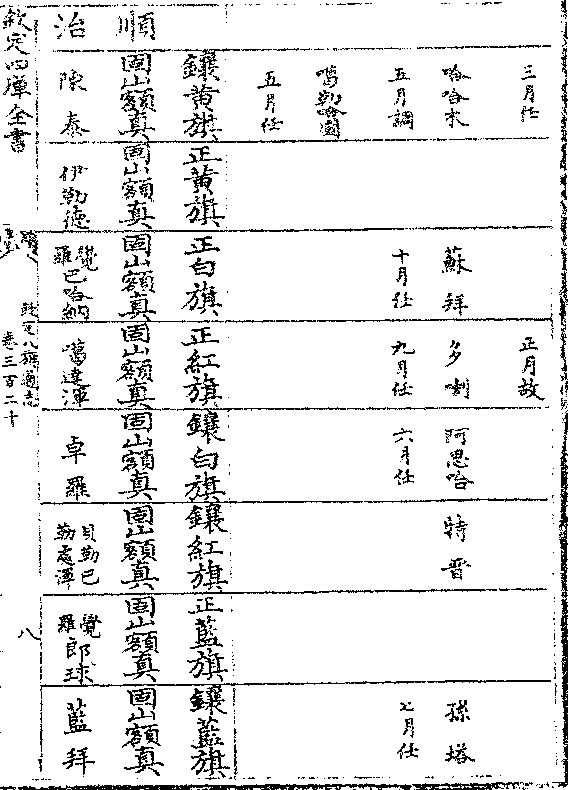 三月任
正月故
哈哈木
蘇拜
喇
阿思哈
特晉
孫塔
五月調
十月任
九月任
六月任
七月任
五月任
鑲黃旗
正黃旗
正白旗
正紅旗
鑲白旗
鑲紅旗
正藍旗
鑲藍旗
順
固山額真
固山額真
固山額真
固山額真
固山額真
固山額真
固山額真
固山額真
治
陳泰
伊勒德
覺羅巴哈納
噶達渾
卓羅
貝勒巴
勒處渾
覺羅郎球
藍拜
欽定四庫全書
欽定八旗通志
卷三百二十
八